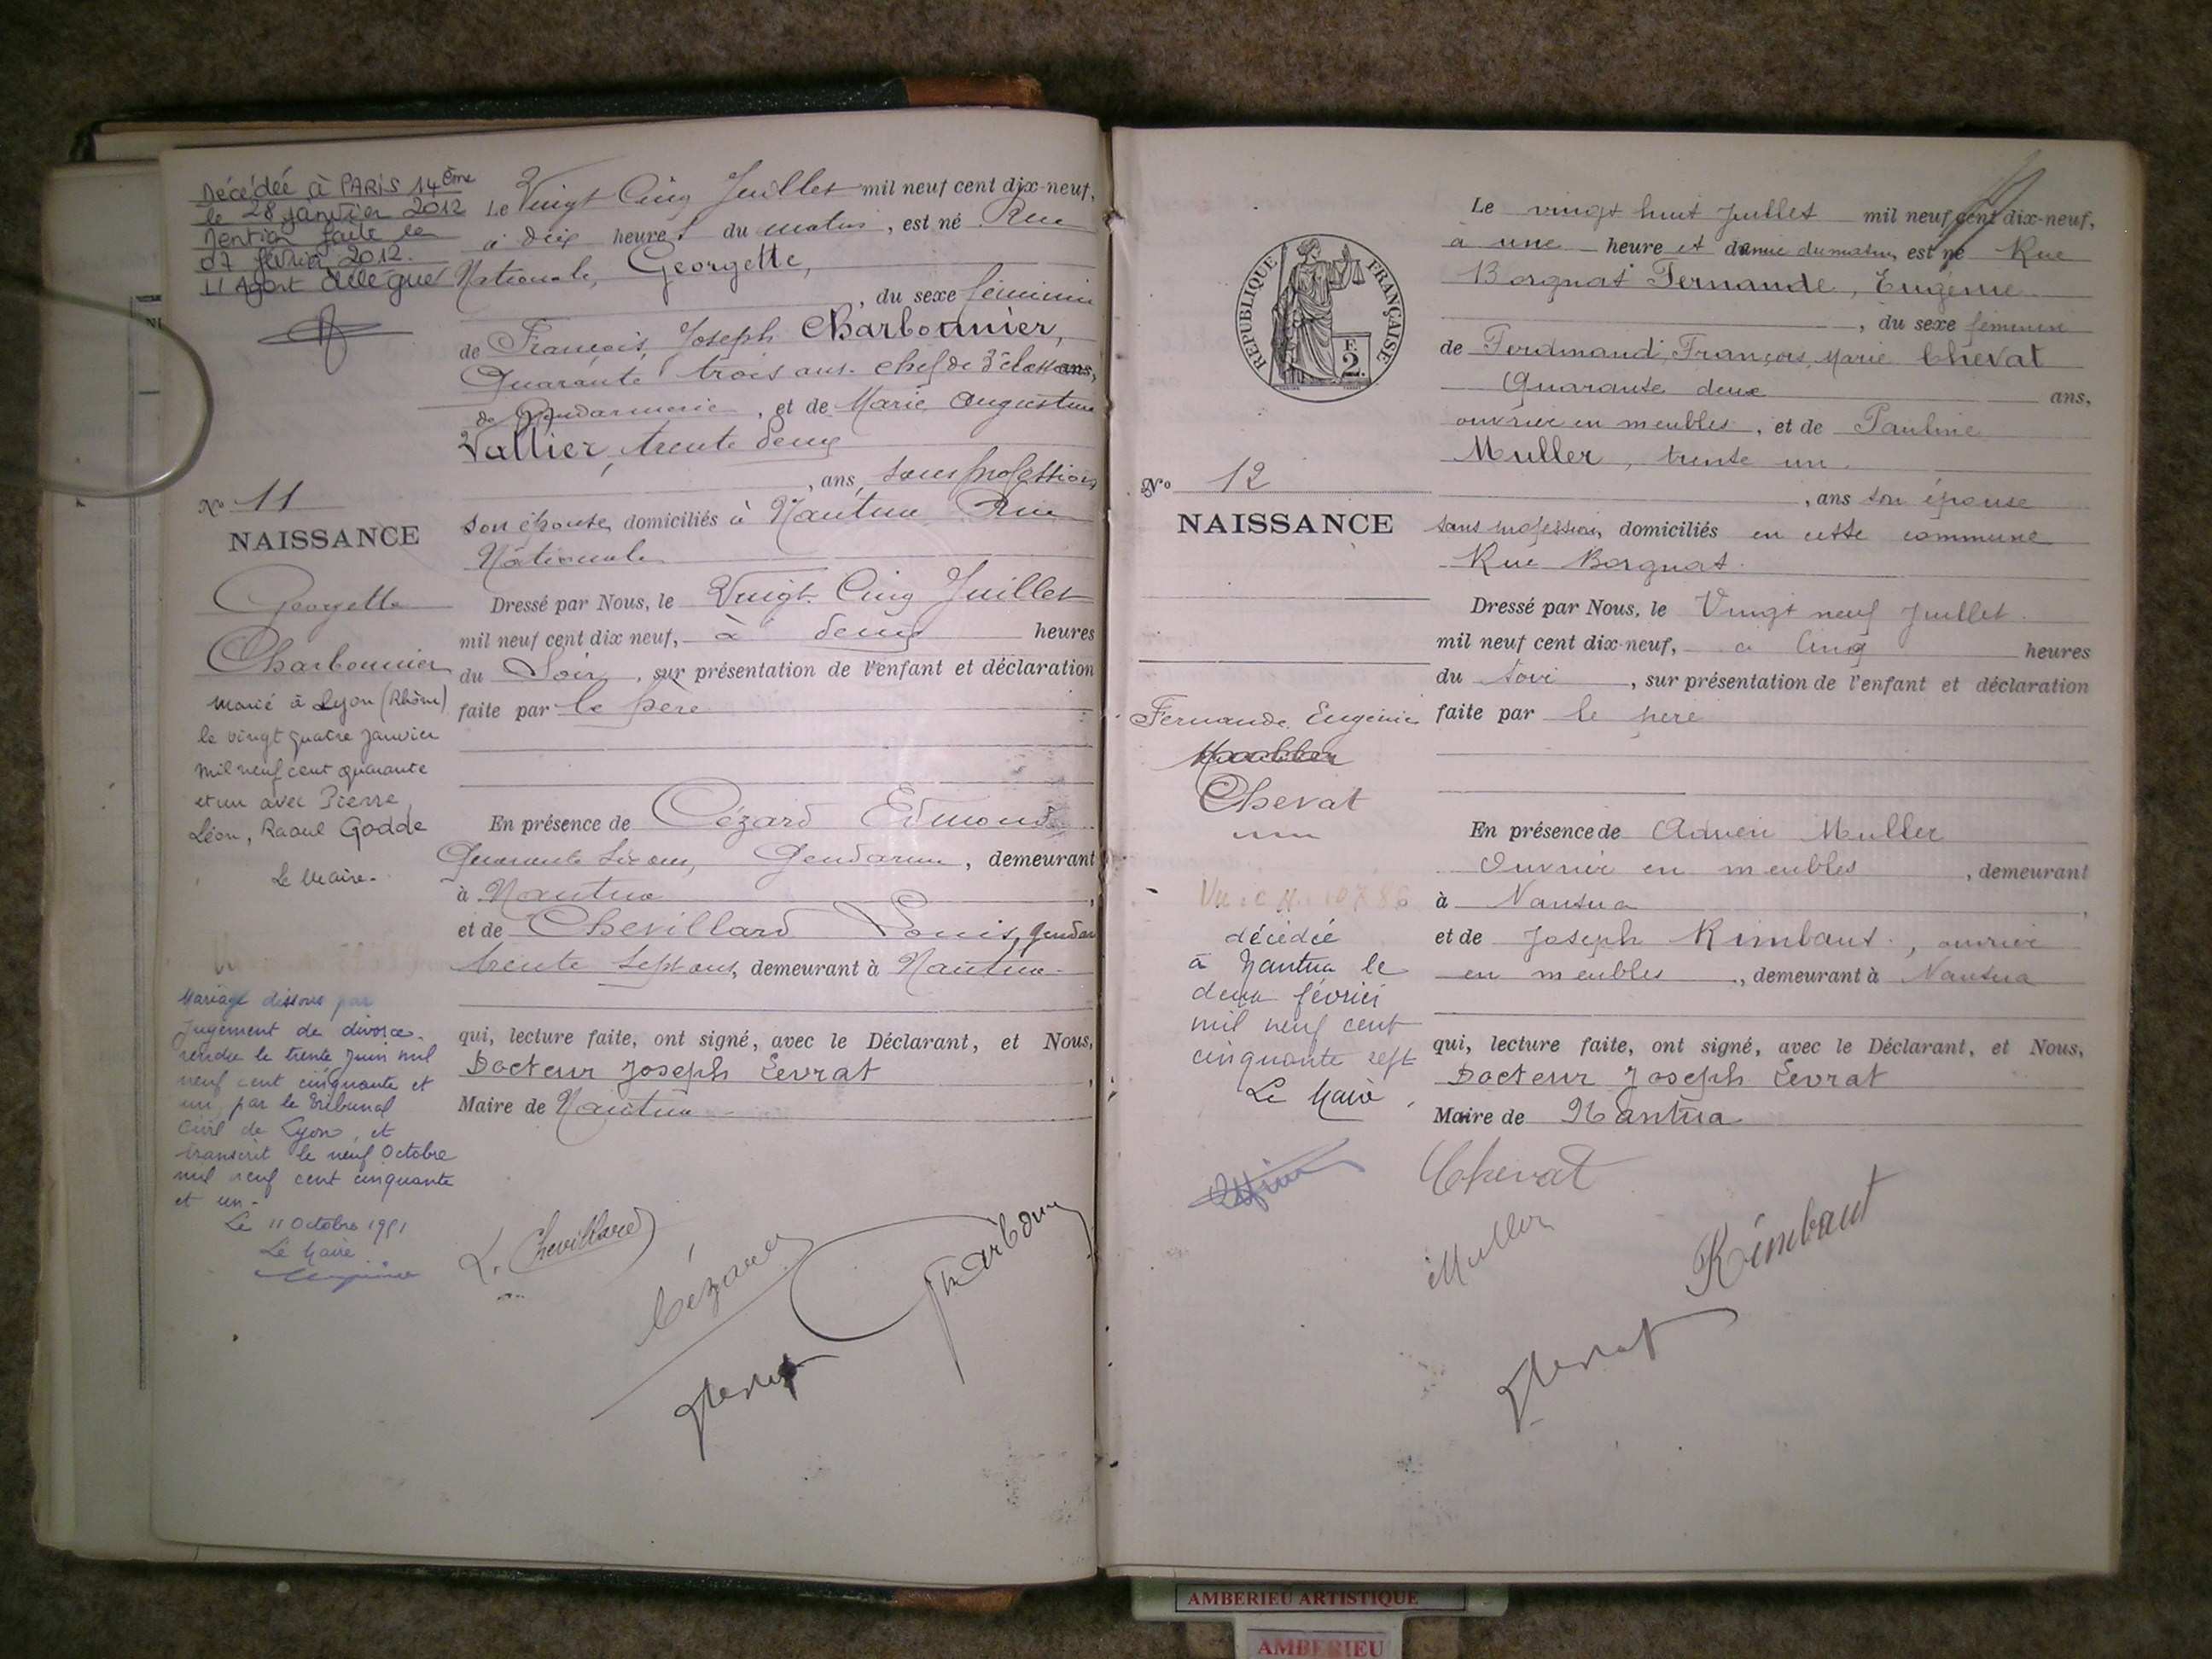 Décédée à PARIS 14ème
le 28 janvier 2012
Mention faite le
07 février 2012.
L'Agent délégué
Nº 11
NAISSANCE
Georgette
Charbonnier
Marié à Lyon (Rhône)
le vingt quatre janvier
mil neuf cent quarante
et un avec Pierre,
Léon, Raoul Godde
Le Maire.
Mariage dissous par
jugement de divorce
rendu le trente Juin mil
neuf cent cinquante et
un par le Tribunal
Civil de Lyon, et
transcrit le neuf Octobre
mil neuf cent cinquante
et un.-
Le 11 Octobre 1951
Le Maire
Le Vingt Cinq Juillet mil neuf cent dix-neuf,
à dix heures du matin, est né Rue
Nationale, Georgette,
, du sexe féminin
de François, Joseph Charbonnier,
Quarante trois ans. chef de 3e classe ans,
de Gendarmerie, et de Marie Augustine
Vallier, trente deux
, ans, sans profession
son épouse, domiciliés à Nantua Rue
Nationale
Dressé par Nous, le Vingt Cinq Juillet
mil neuf cent dix neuf, à deux heures
du Soir, sur présentation de l'enfant et déclaration
faite par le père
En présence de Cézard Edmond
Quarante six ans, Gendarme, demeurant
à Nantua,
et de Chevillard Louis, gendar
trente sept ans, demeurant à Nantua
qui, lecture faite, ont signé, avec le Déclarant, et Nous,
Docteur Joseph Levrat,
Maire de Nantua
L. Chevillard
Cézard
Charbonn
Levrat
RÉPUBLIQUE FRANÇAISE
2F.
Nº 12
NAISSANCE
Fernande Eugénie
Chevat
décédée
à Nantua le
deux février
mil neuf cent
cinquante sept
Le Maire
Le vingt huit Juillet mil neuf cent dix-neuf,
à une heure et demie du matin, est né Rue
Borgnat Fernande, Eugénie
, du sexe féminin
de Ferdinand, François, Marie Chevat
Quarante deux ans,
ouvrier en meubles, et de Pauline
Muller, trente un
, ans son épouse
sans profession, domiciliés en cette commune
Rue Borgnat.
Dressé par Nous, le Vingt neuf Juillet
mil neuf cent dix-neuf, a cinq heures
du soir, sur présentation de l'enfant et déclaration
faite par le père
En présence de Adrien Muller
Ouvrier en meubles, demeurant
à Nantua,
et de Joseph Rimbaut, ouvrier
en meubles, demeurant à Nantua
qui, lecture faite, ont signé, avec le Déclarant, et Nous,
Docteur Joseph Levrat
Maire de Nantua
Chevat
Muller
Rimbaut
Levrat
AMBERIEU ARTISTIQUE
AMBERIEU